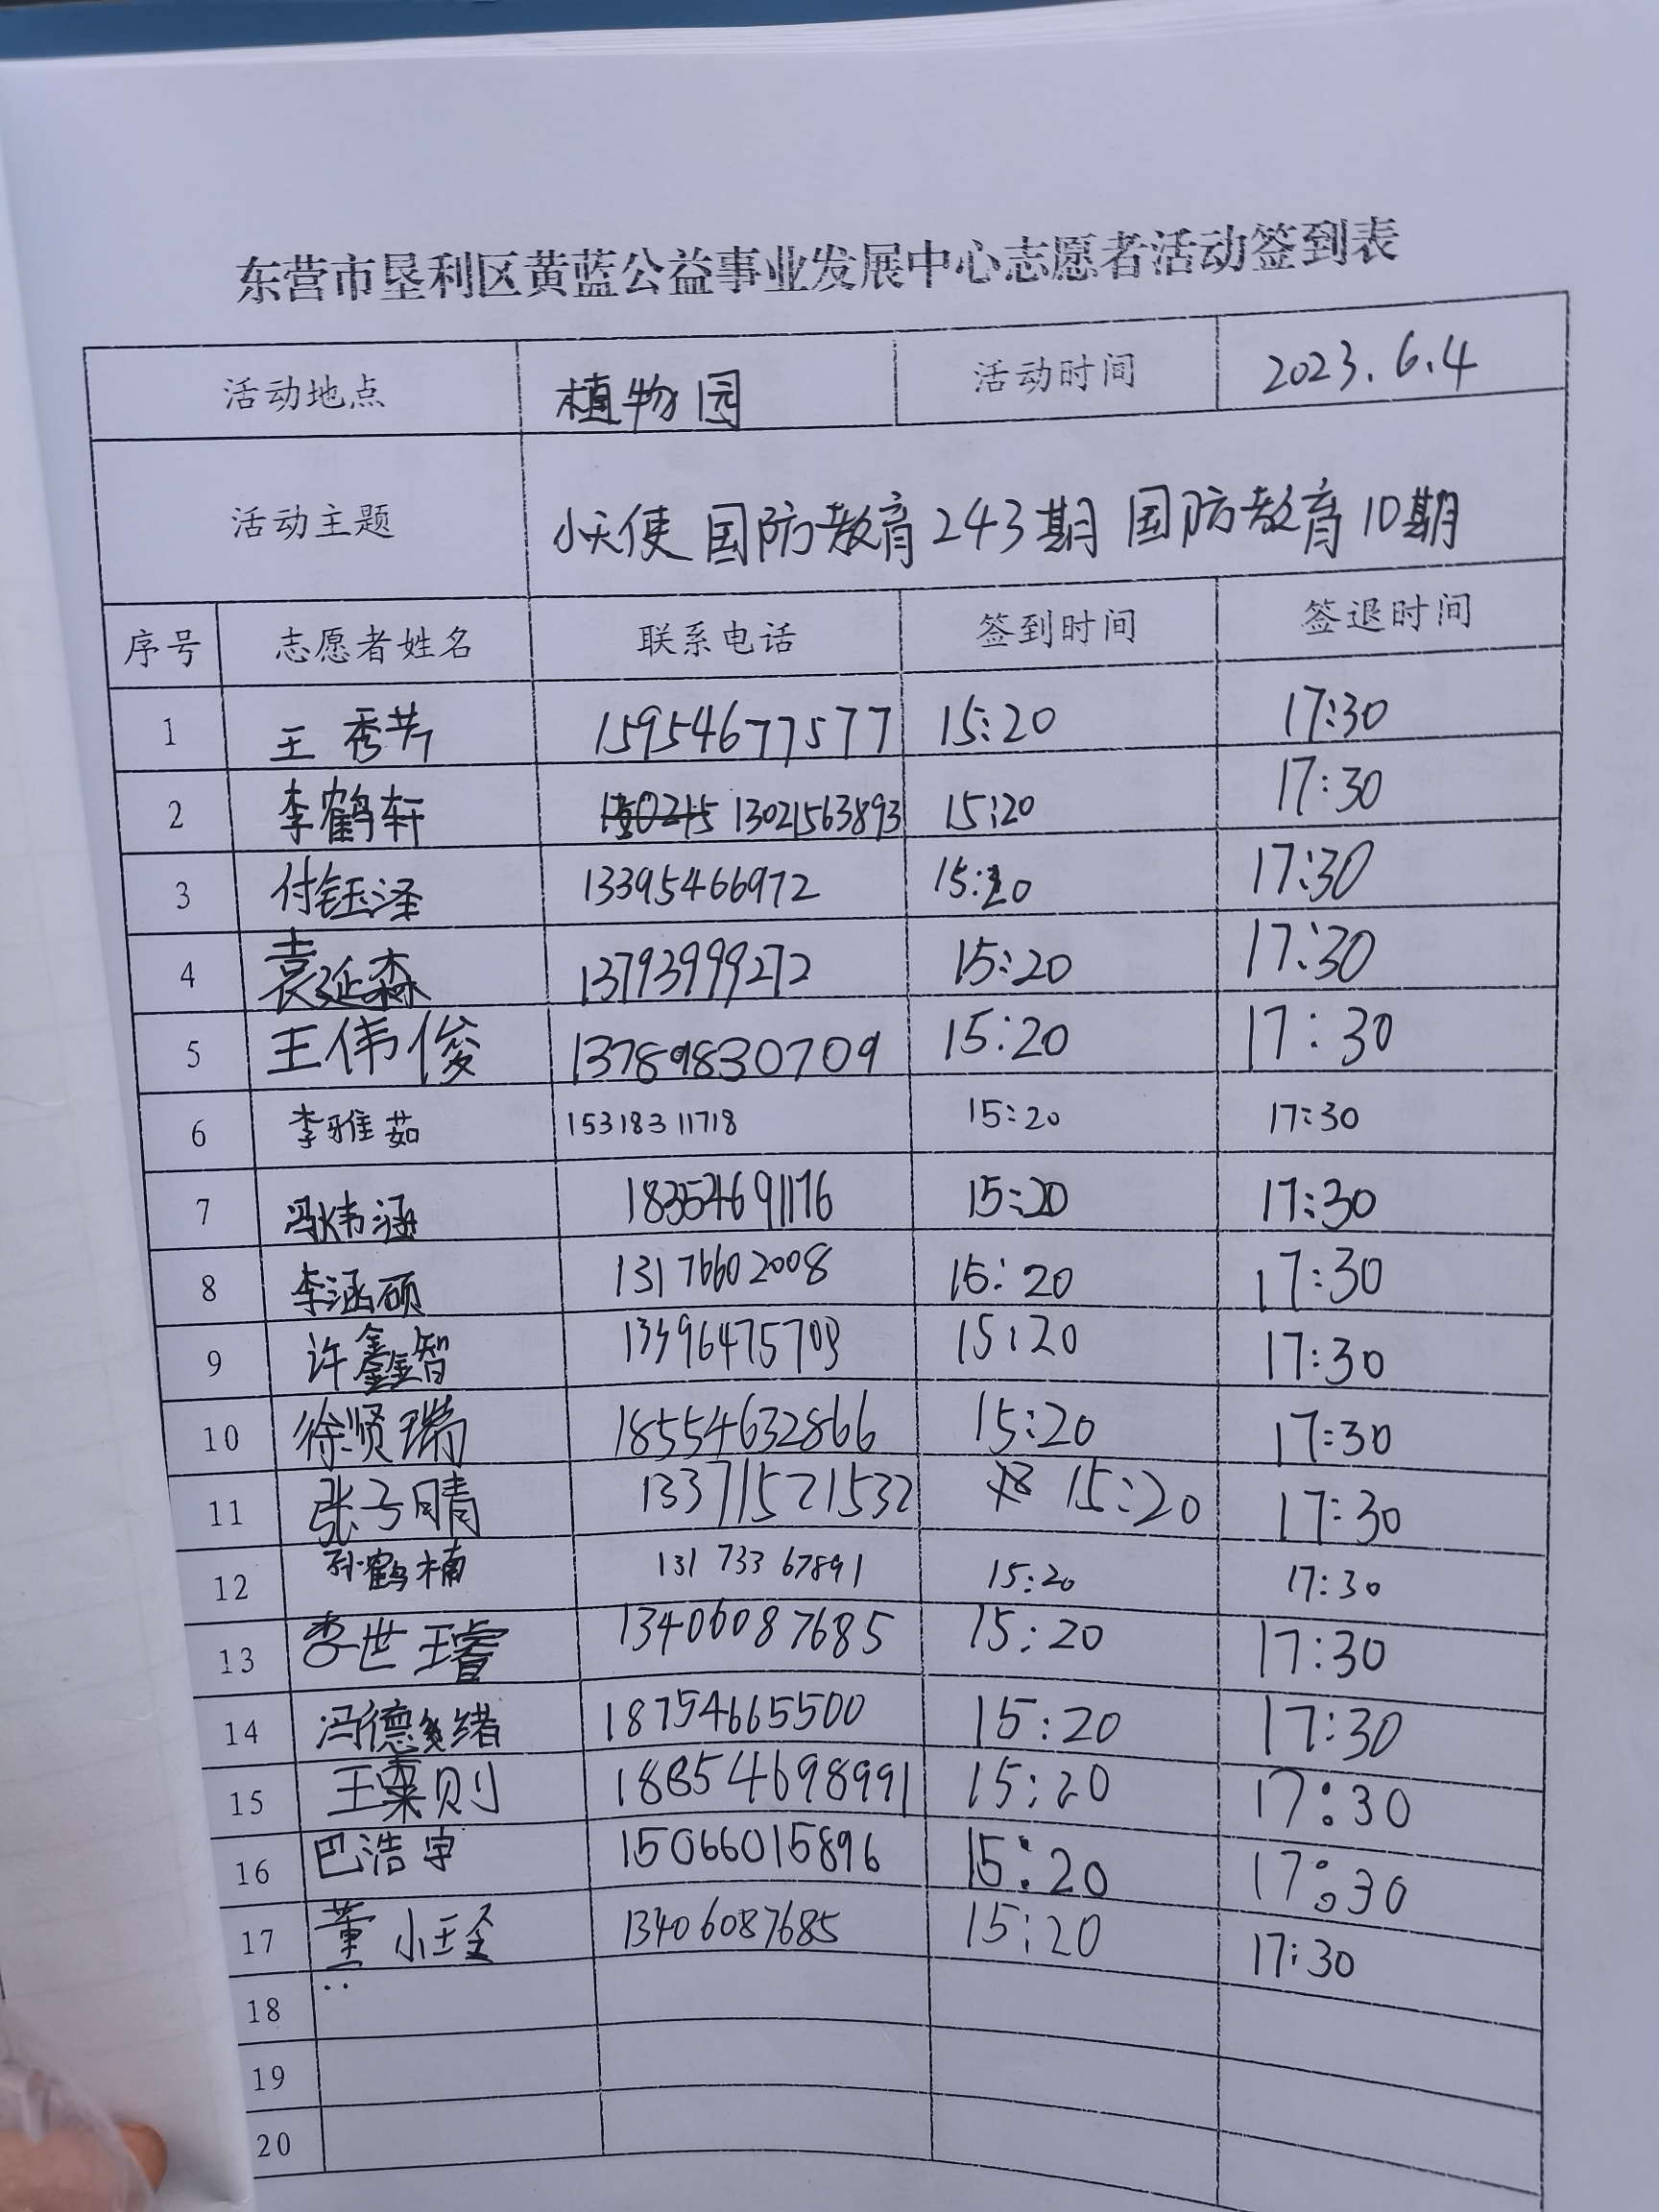 东营市垦利区黄蓝公益事业发展中心志愿者活动签到表
活动地点 植物园 活动时间 2023.6.4
活动主题 小天使 国防教育243期 国防教育10期
序号 志愿者姓名 联系电话 签到时间 签退时间
1 王秀芹 15954677577 15:20 17:30
2 李鹤轩 13021563893 15:20 17:30
3 付钰泽 13395466972 15:20 17:30
4 袁延森 13793999272 15:20 17:30
5 王伟俊 13789830709 15:20 17:30
6 李雅茹 15318311718 15:20 17:30
7 冯炜涵 18354691176 15:20 17:30
8 李涵硕 13176602008 15:20 17:30
9 许鑫智 15:20 17:30
10 徐贤瑞 18554632866 15:20 17:30
11 张子晴 13371521532 15:20 17:30
12 孙鹤楠 13173367891 15:20 17:30
13 李世璿 13406087685 15:20 17:30
14 冯德 绪 18754665500 15:20 17:30
15 王 则 18854698991 15:20 17:30
16 巴浩宇 15066015896 15:20 17:30
17 董小 13406087685 15:20 17:30
18
19
20